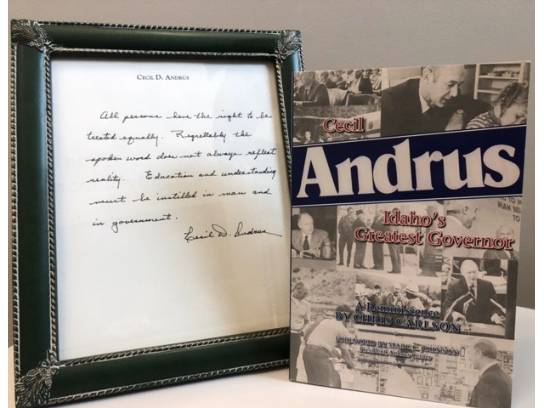 CECIL D. ANDRUS
All persons have the right to be
treated equally. Regrettably the
spoken word does not always reflect
reality. Education and understanding
must be instilled in man and
in government.
Cecil D. Andrus
Cecil
Andrus
Idaho's
Greatest Governor
A Reminiscence
BY CHRIS CARLSON